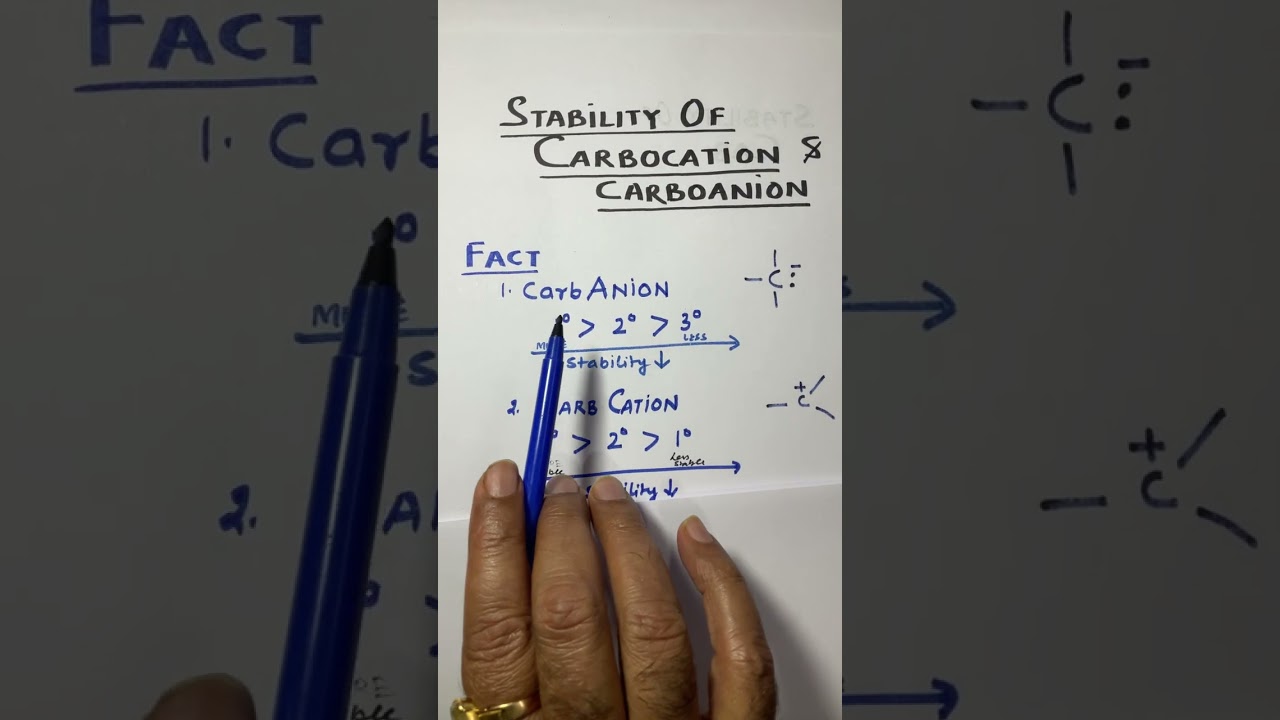 STABILITY OF
CARBOCATION &
CARBOANION
FACT
1. CARBANION
> 2° > 3°
LESS
Stability ↓
2. ARB CATION
> 2° > 1°
Less
stable
↓
C
+
C